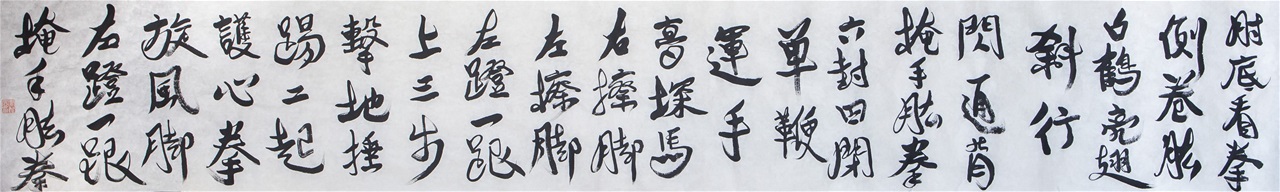 肘底看拳
倒卷肱
白鶴亮翅
斜行
閃通背
掩手肱拳
六封四閉
单鞭
運手
高探馬
右擦脚
左擦脚
左蹬一跟
上三步
擊地捶
踢二起
護心拳
旋風脚
右蹬一跟
掩手肱拳